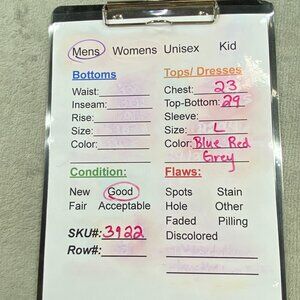 Mens Womens Unisex Kid
Bottoms Tops/ Dresses
Waist: Chest: 23
Inseam: Top-Bottom: 29
Rise: Sleeve:
Size: Size: L
Color: Color: Blue Red
Grey
Condition: Flaws:
New Good Spots Stain
Fair Acceptable Hole Other
Faded Pilling
SKU#: 3922 Discolored
Row#: